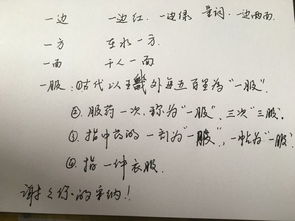 一边 一边红.一边绿 量词.一边两面.
一方 在水一方.
一面 千人一面
一服,时代以王畿外每五百里为"一服".
②.服药一次.称为"一服".三次"三服".
③.指中药的一剂为"一服",一帖为"一服"
④.指一件衣服.
谢谢你的采纳!